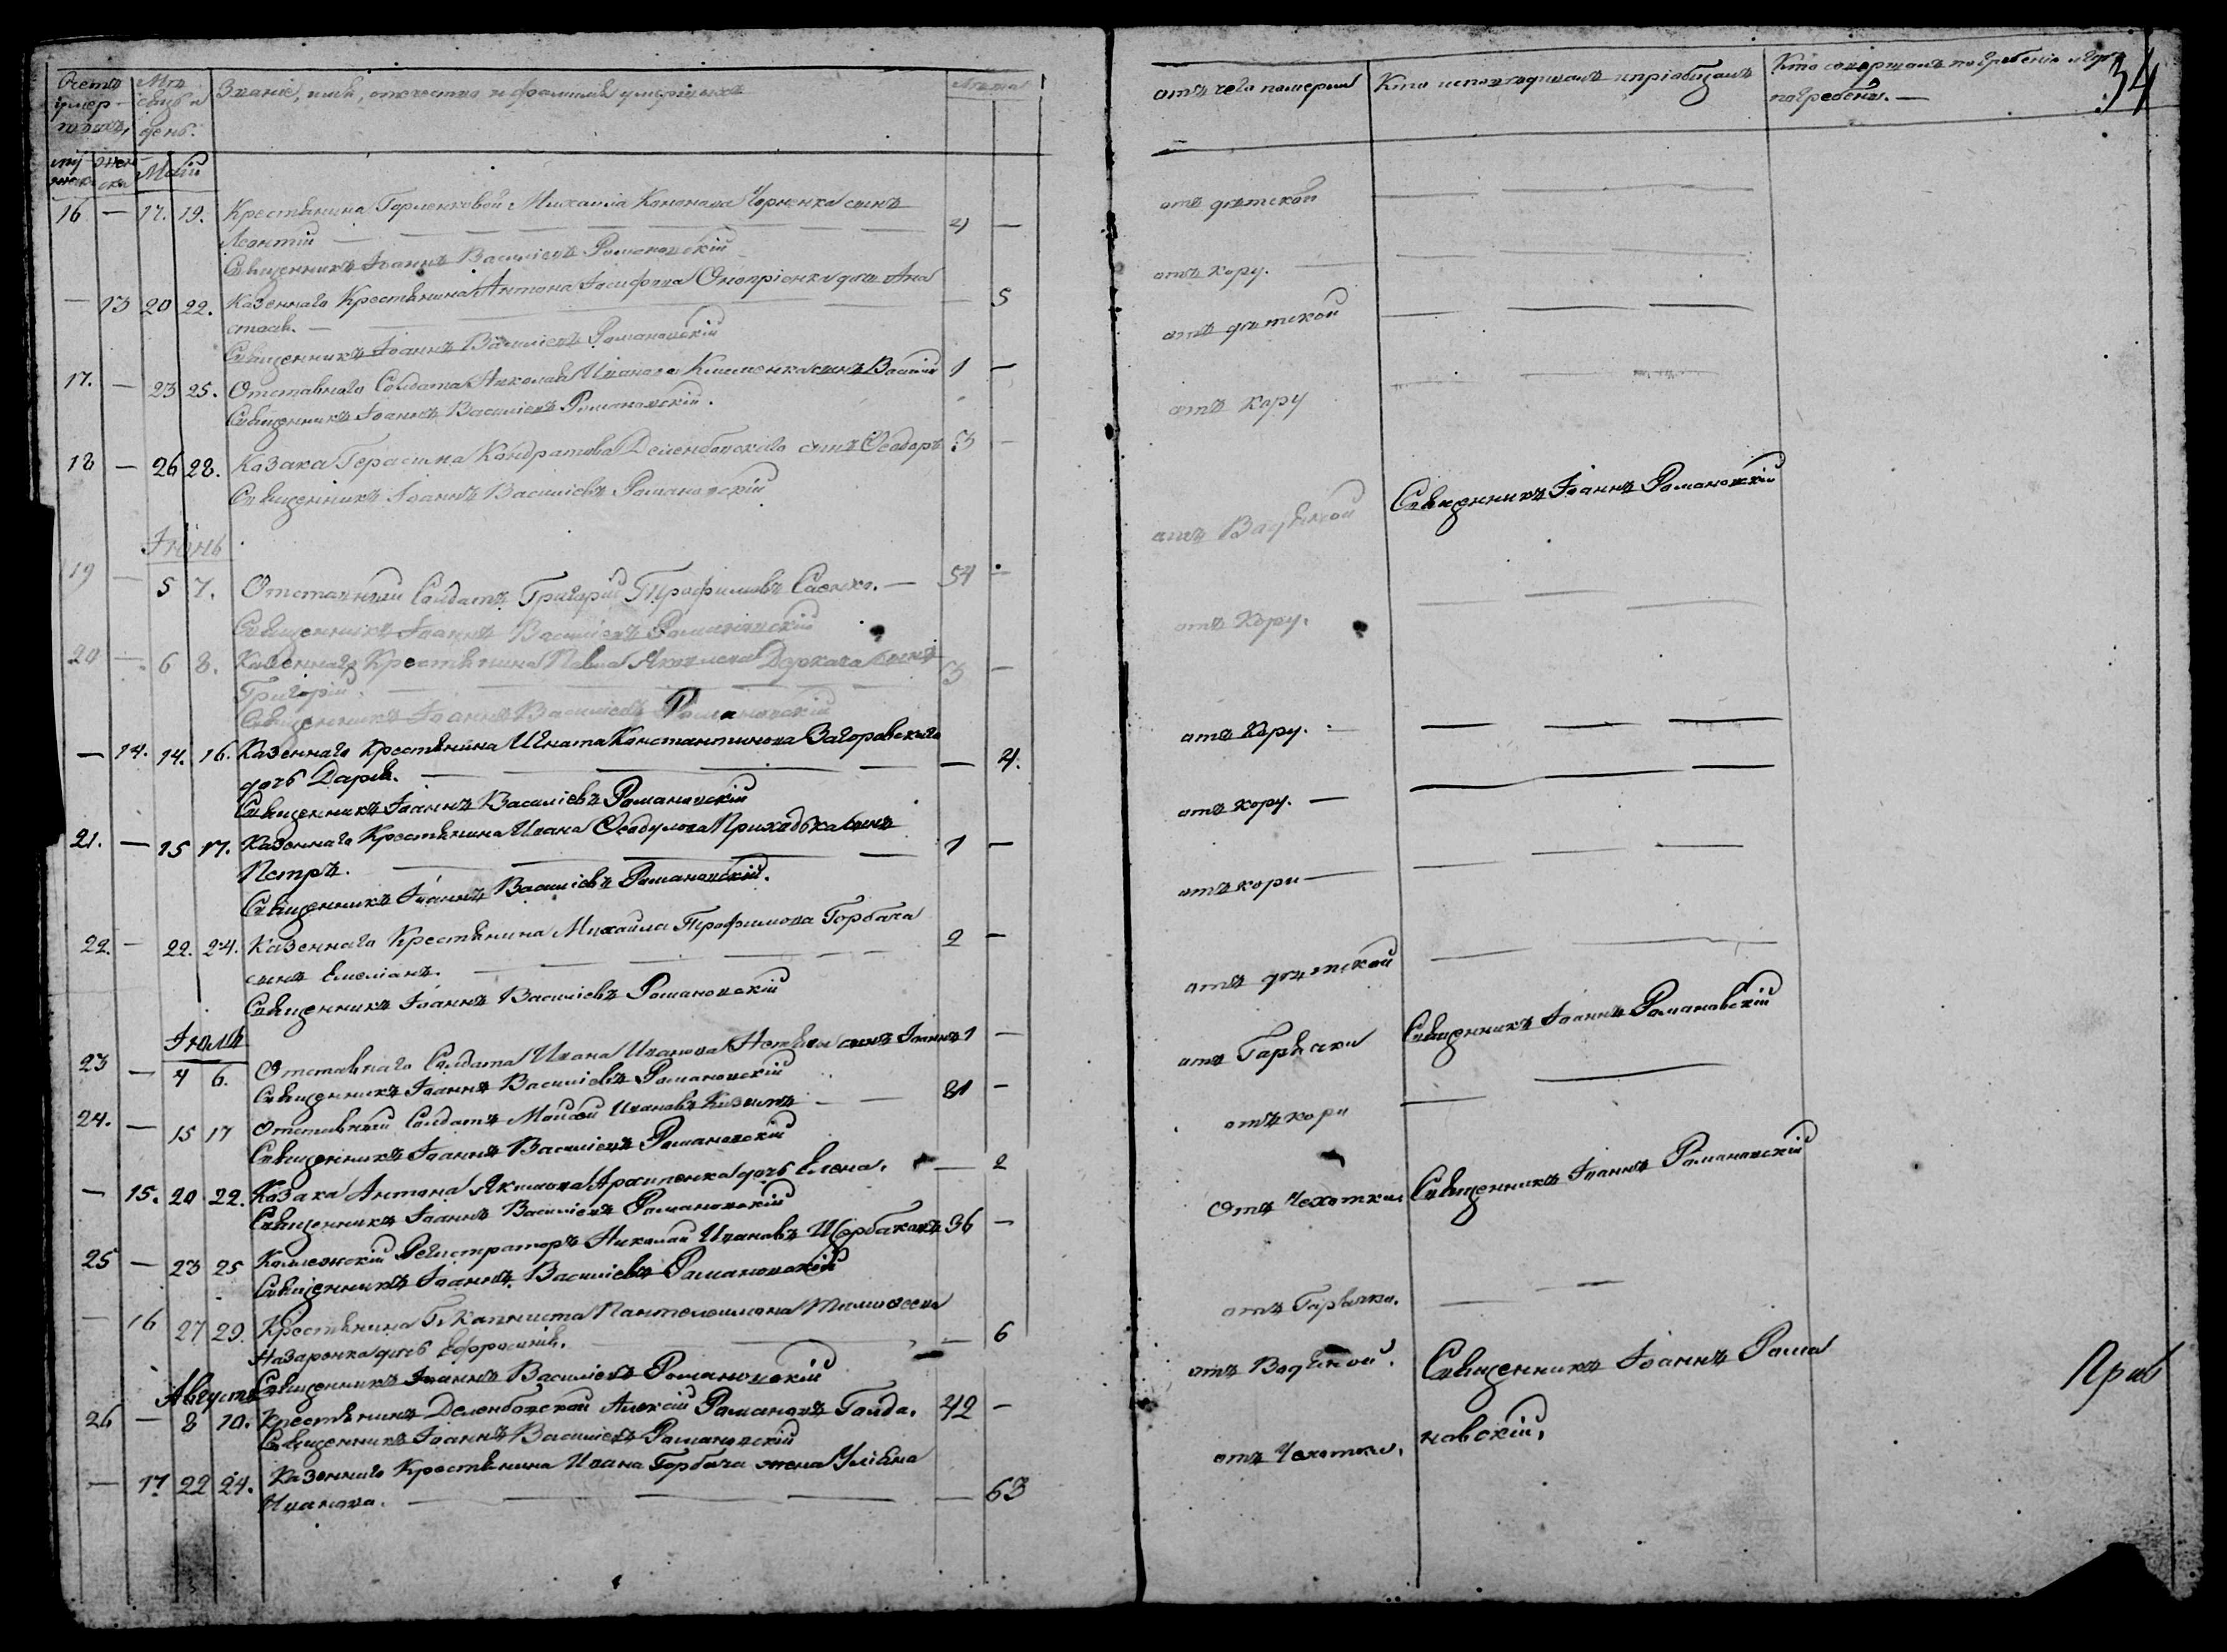 Счетъ умер-шихъ,
Мѣсяцъ и день.
Званіе, имя, отчество и фамилія умершихъ
Лѣта
мужеска
женска
Май
16 — 17. 19. Крестьянина Горленковой Михаила Кононова Чорненка сынъ
Леонтій — 4 —
Священникъ Іоаннъ Василіевъ Романовскій
— 13 20 22. Казеннаго Крестьянина Антона Іосифова Оноприенка дочь Ана
стасія. — — 5
Священникъ Іоаннъ Василіевъ Романовскій
17. — 23 25. Отставнаго Солдата Николая Иванова Клименка сынъ Василій 1 —
Священникъ Іоаннъ Василіевъ Романовскій.
18 — 26 28. Козака Герасима Кондратова сынъ Ѳеодоръ 3 —
Священникъ Іоаннъ Василіевъ Романовскій
Іюнь
19 — 5 7. Отставный Солдатъ Григорій Трофимовъ Саенко. — 54 —
Священникъ Іоаннъ Василіевъ Романовскій
20 — 6 8. Казеннаго Крестьянина Павла Яковлева Деркача сынъ
Григорій. — 3 —
Священникъ Іоаннъ Василіевъ Романовскій
— 14. 14. 16. Казеннаго Крестьянина Игната Константинова Загоровскаго
дочь Дарія. — — 4.
Священникъ Іоаннъ Василіевъ Романовскій
21. — 15 17. Казеннаго Крестьянина Ивана Ѳеодулова Приходька сынъ
Петръ. — 1 —
Священникъ Іоаннъ Василіевъ Романовскій.
22. — 22. 24. Казеннаго Крестьянина Михаила Трофимова Горбача 2 —
сынъ Емеліанъ. —
Священникъ Іоаннъ Василіевъ Романовскій
Іюль
23 — 4 6. Отставнаго Солдата Ивана Иванова сынъ Іоаннъ 1 —
Священникъ Іоаннъ Василіевъ Романовскій
24. — 15 17 Отставный Солдатъ Мойсей Ивановъ — 81 —
Священникъ Іоаннъ Василіевъ Романовскій
— 15. 20 22. Козака Антона Якимова дочь Елена. — 2
Священникъ Іоаннъ Василіевъ Романовскій
25 — 23 25 Коллежскій Регистраторъ Николай Ивановъ Щербаковъ 36 —
Священникъ Іоаннъ Василіевъ Романовскій
— 16 27 29. Крестьянина Г. Капниста Пантелеимона Тимофеева
Назаренка дочь Ефросинія. — 6
Священникъ Іоаннъ Василіевъ Романовскій
Августъ
26 — 8 10. Крестьянинъ Алексій Романовъ Гайда. 42 —
Священникъ Іоаннъ Василіевъ Романовскій
— 17 22 24. Казеннаго Крестьянина Ивана Горбача жена Уліяна
Иванова. — — 63
34
отъ чего померли
Кто исповѣдывалъ и пріобщалъ
Кто совершалъ погребеніе и гдѣ
погребены. —
отъ дѣтской
отъ кору.
отъ дѣтской
отъ кору
отъ Водяной Священникъ Іоаннъ Романовскій
отъ Кору.
отъ Кору.
отъ кору. —
отъ кори —
отъ дѣтской
отъ Гарячки Священникъ Іоаннъ Романовскій
отъ кори
Отъ Чехотки. Священникъ Іоаннъ Романовскій
отъ Гарячки.
отъ Водяной. Священникъ Іоаннъ Рома
отъ Чехотки. новскій.